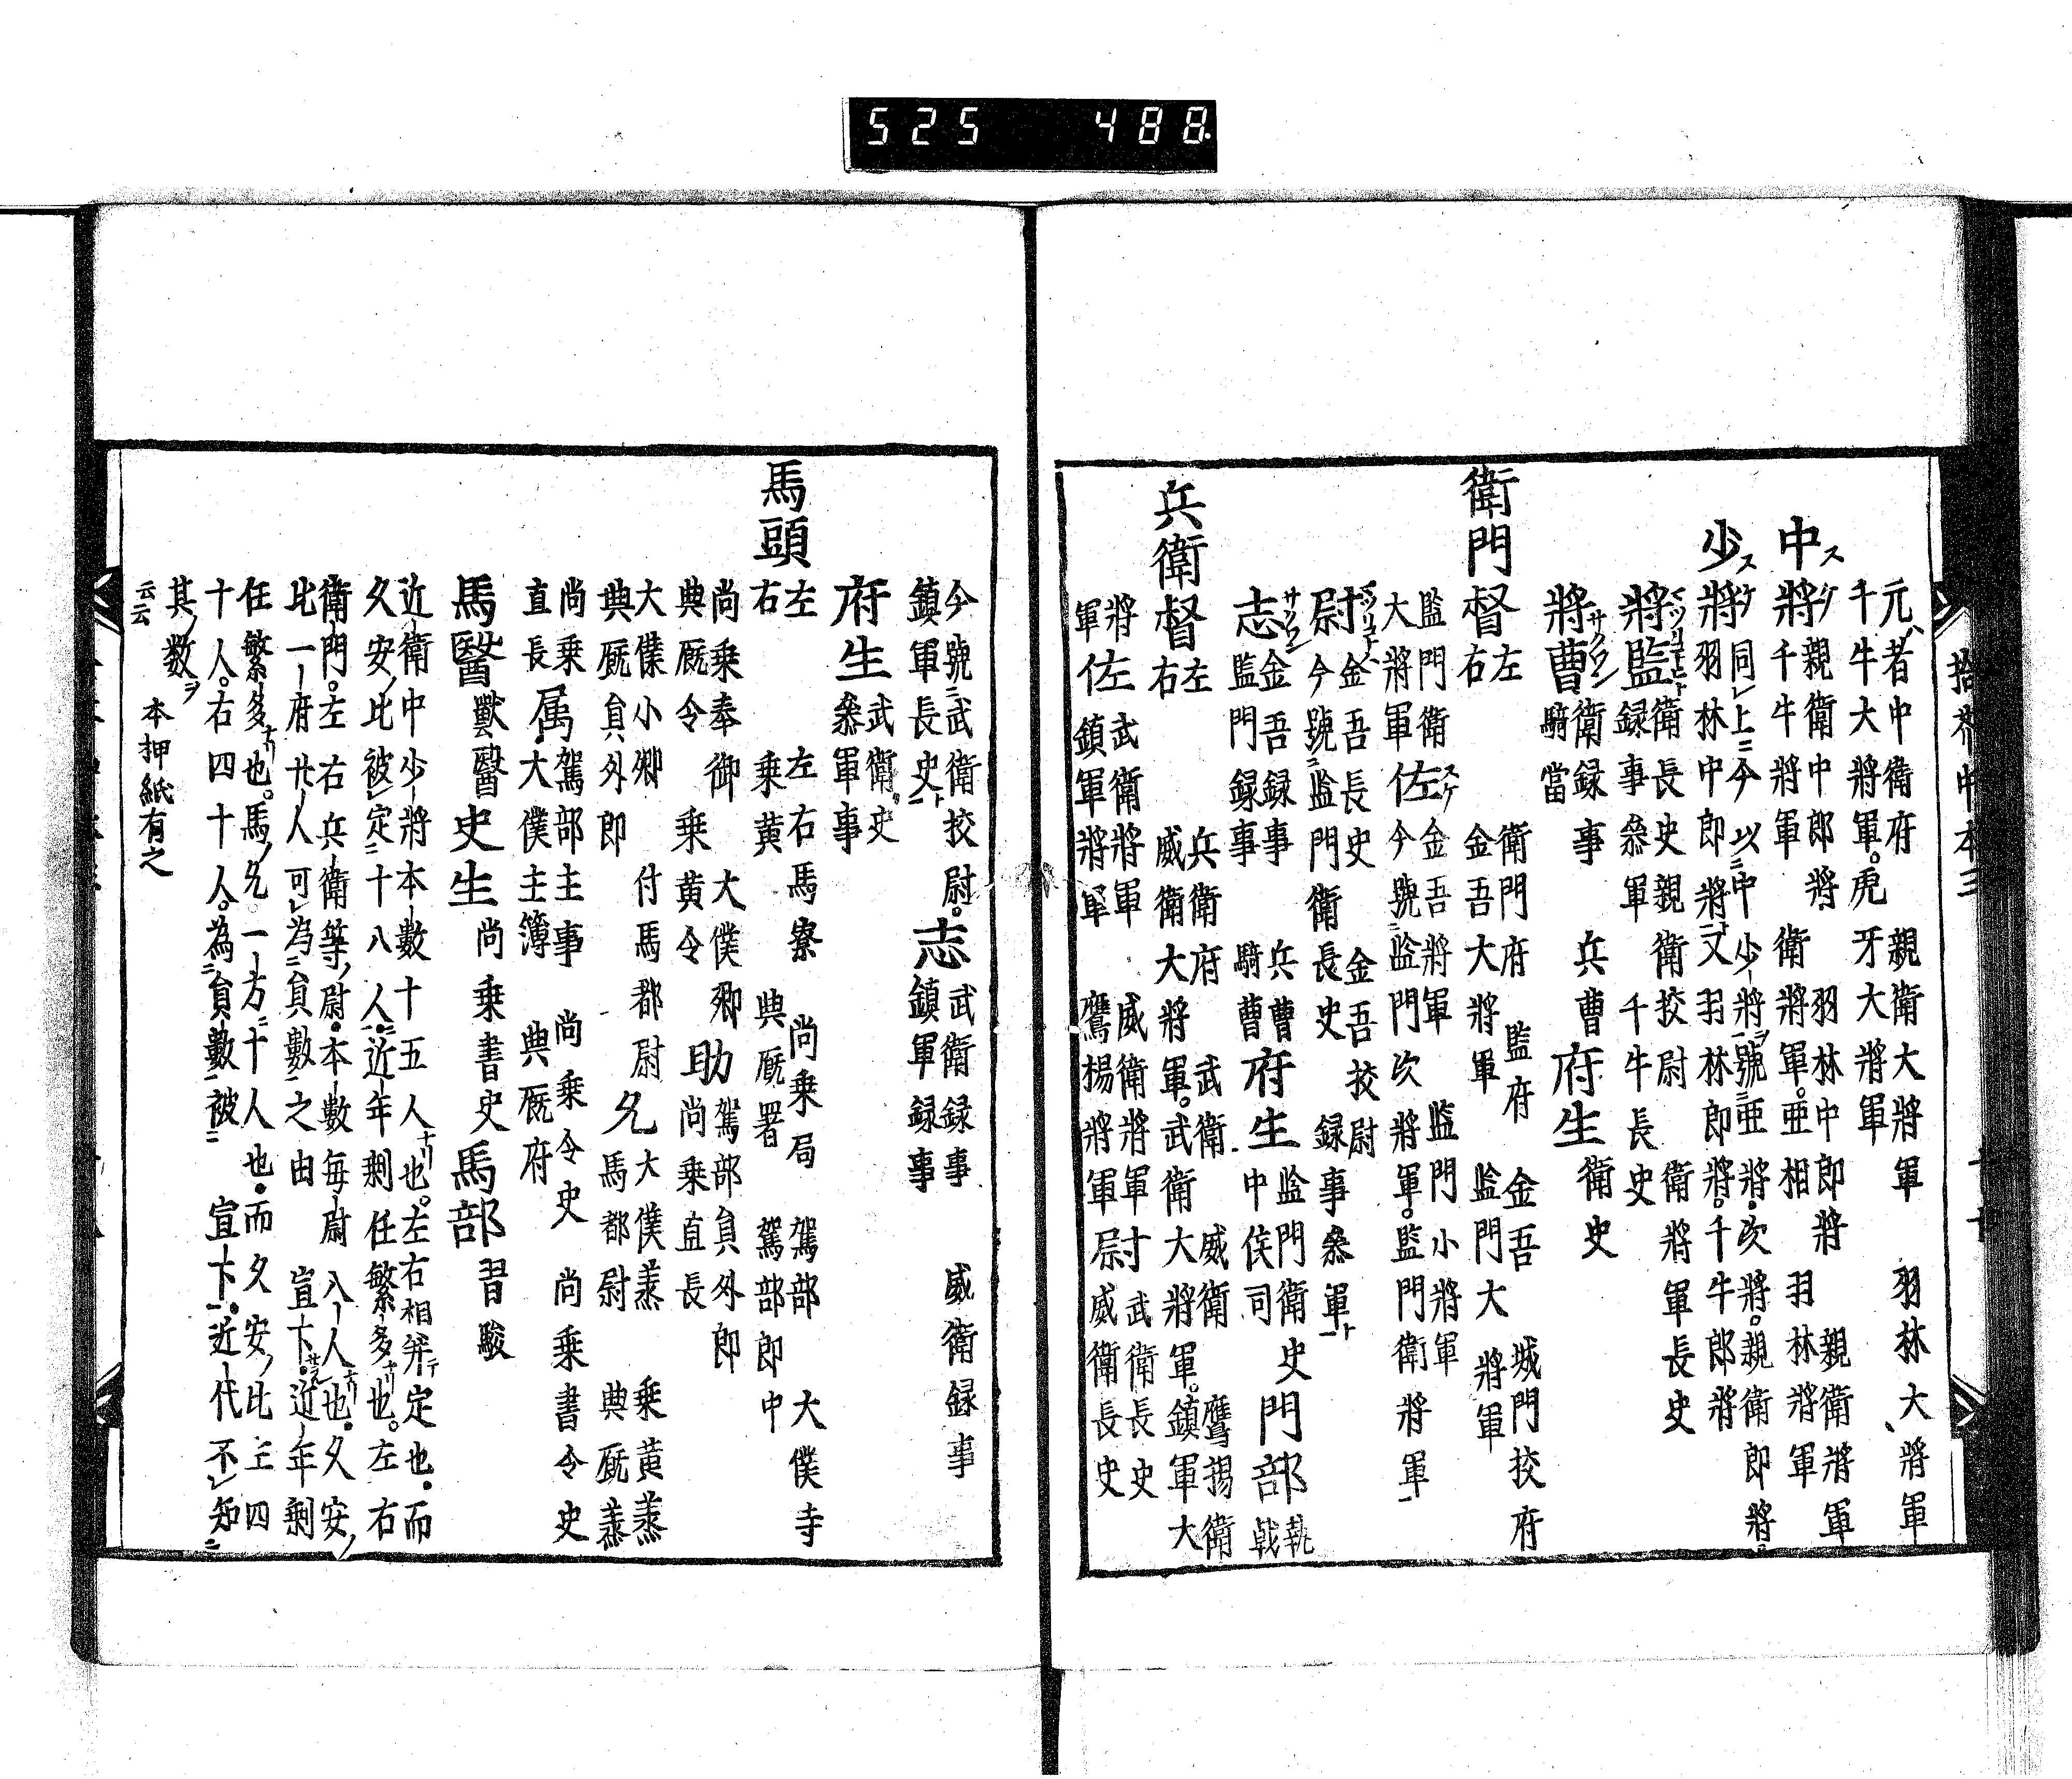 525 488.
拾芥中本三
元者中衛府 親衛大將軍 羽林大將軍
千牛大將軍。虎牙大將軍
中將 親衛中郎將 羽林中郎將 親衛將軍
千牛將軍 衛將軍。亜相 羽林將軍
少將 同上ニ今以中少將ヲ號亜將。次將。親衛郎將。
羽林中郎將ト又羽林郎將。千牛郎將
將監 衛長史親衛校尉 衛將軍長史
録事叅軍 千牛長史
將曹 衛録事 兵曹 府生 衛史
騎當
衛門督 左 衛門府 監府 金吾 城門校府
右 金吾大將軍 監門大將軍
監門衛 佐 金吾將軍 監門小將軍
大將軍 今號監門次將軍。監門衛將軍
尉 金吾長史 金吾校尉
今號監門衛長史 録事叅軍
志 金吾録事 兵曹 府生 監門衛史 門部 執
監門録事 騎曹 中侯司 戟
兵衛督 左 兵衛府 武衛 威衛 鷹揚衛
右 威衛大將軍。武衛大將軍。鎮軍大
將 佐 武衛將軍 威衛將軍 尉 武衛長史
軍 鎮軍將軍 鷹揚將軍 威衛長史
今號武衛校尉。志 武衛録事 威衛録事
鎮軍長史 鎮軍録事
府生 武衛史
叅軍事
馬頭 左 左右馬寮 尚乗局 駕部 大僕寺
右 乗黄 典厩署 駕部郎中
尚乗奉御 大僕卿 助 駕部員外郎
典厩令 乗黄令 尚乗直長
大僕小卿 付馬都尉 允 大僕蒸 乗黄蒸
典厩員外郎 馬都尉 典厩蒸
尚乗 属 駕部主事 尚乗令史 尚乗書令史
直長 大僕主簿 典厩府
馬醫 獸醫 史生 尚乗書史 馬部 習馭
近衛中少將本數十五人也。左右相并定也。而
久安比被定十八人。近年剰任繁多也。左右
衛門。左右兵衛等尉。本數毎尉八人也。久安
比一府廿人可為員數之由 宣下。近年剰
任繁多也。馬允。一方十人也。而久安比三四
十人。右四十人。為員數被 宣下。近代不知
其數ヲ 本押紙有之
云云